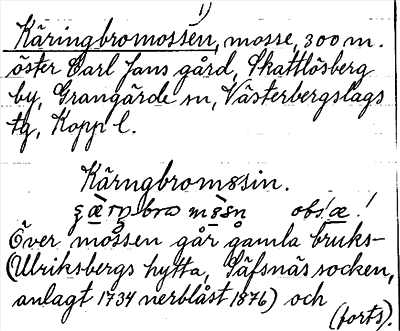 1)
Käringbromossen, mosse, 300 m.
öster Carl Jans gård, Skattlösberg
by, Grangärde sn, Västerbergslags
tg, Kopp l.
Kärngbromssin.
obs! æ!
Över mossen går gamla bruks-
(Ulriksbergs hytta, Säfsnäs socken,
anlagt 1734 nerblåst 1876) och
(forts).